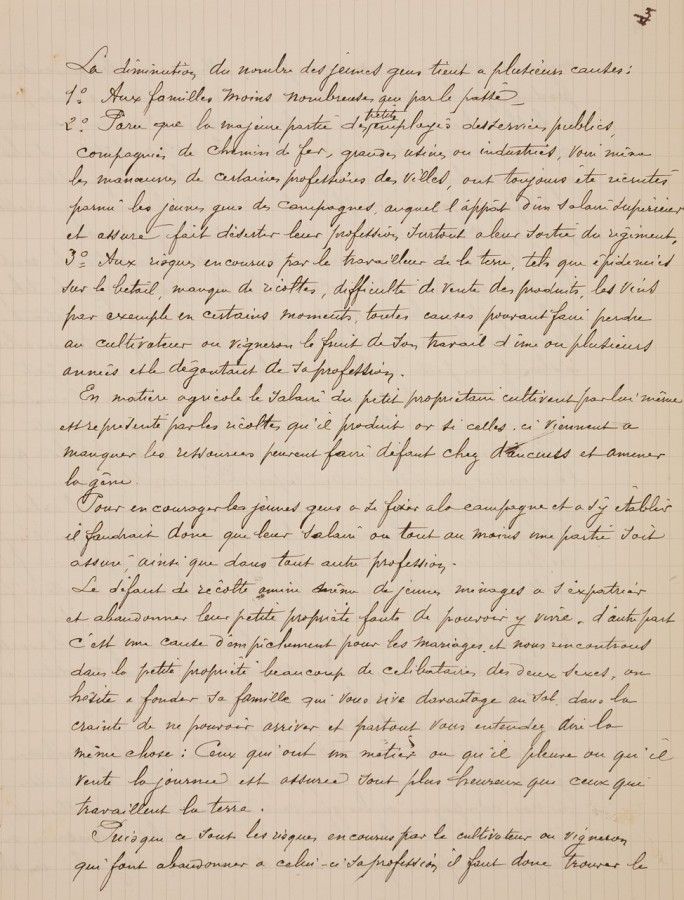 3
La diminution du nombre des jeunes gens tient a plusieurs causes:
1º Aux familles moins nombreuses que par le passé
2º Parce que la majeure partie des petits employés des services publics,
compagnies de chemin de fer, grandes usines ou industries, voir même
les manœuvres de certaines professions des villes, ont toujours été recrutés
parmi les jeunes gens des campagnes, auquel l'appât d'un salaire supérieur
et assuré fait déserter leur profession surtout a leur sortie du régiment.
3º Aux risques encourus par le travailleur de la terre, tels que épidemies
sur le betail, manque de récoltes, difficulté de vente des produits, les vins
par exemple en certains moments, toutes causes pouvant faire perdre
au cultivateur ou vigneron le fruit de son travail d'une ou plusieurs
années et le dégoutant de sa profession.
En matière agricole le salaire du petit propriétaire cultivent par lui même
est représenté par les récoltes qu'il produit or si celles-ci viennent a
manquer les ressources peuvent faire défaut chez d'aucuns et amener
la gêne
Pour encourager les jeunes gens a se fixer a la campagne et a s'y établir
il faudrait donc que leur salaire ou tout au moins une partie soit
assuré, ainsi que dans tout autre profession.
Le défaut de récolte amène même de jeunes ménages a s'expatrier
et abandonner leur petite propriété faute de pouvoir y vivre. d'autre part
c'est une cause d'empêchement pour les mariages, et nous rencontrons
dans la petite propriété beaucoup de celibataires des deux sexes, on
hésite a fonder sa famille qui vous rive davantage au sol, dans la
crainte de ne pouvoir arriver et partout vous entendez dire la
même chose: Ceux qui ont un métier ou qu'il pleuve ou qu'il
vente la journée est assurée sont plus heureux que ceux qui
travaillent la terre.
Puisque ce sont les risques encourus par le cultivateur ou vigneron
qui font abandonner a celui-ci sa profession il faut donc trouver le